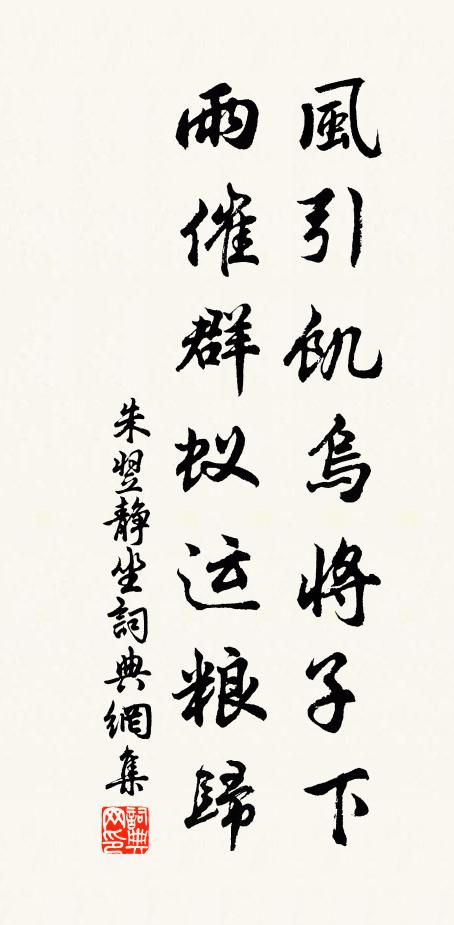 風引飢烏將子下
雨催群蚁运粮歸
朱翌静坐詞典網集
詞典网印